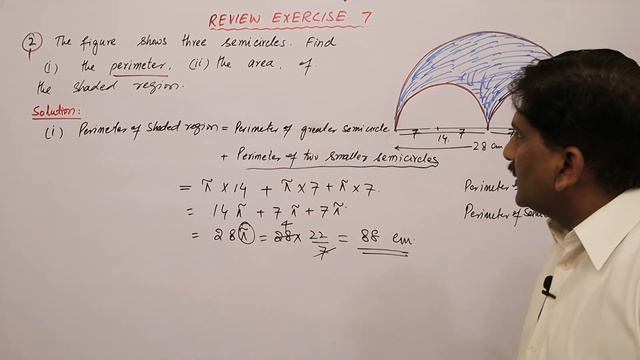 REVIEW EXERCISE 7
② The figure shows three semicircles. Find
(i) the perimeter, (ii) the area, of
the shaded region.
Solution:
(i) Perimeter of shaded region = Perimeter of greater semicircle
+ Perimeter of two smaller semicircles
7 14 7 7
28 cm
= π × 14 + π × 7 + π × 7.
= 14 π + 7 π + 7 π
= 28 π = 28 × 22/7 = 88 cm.
4
Perimeter
Perimeter of